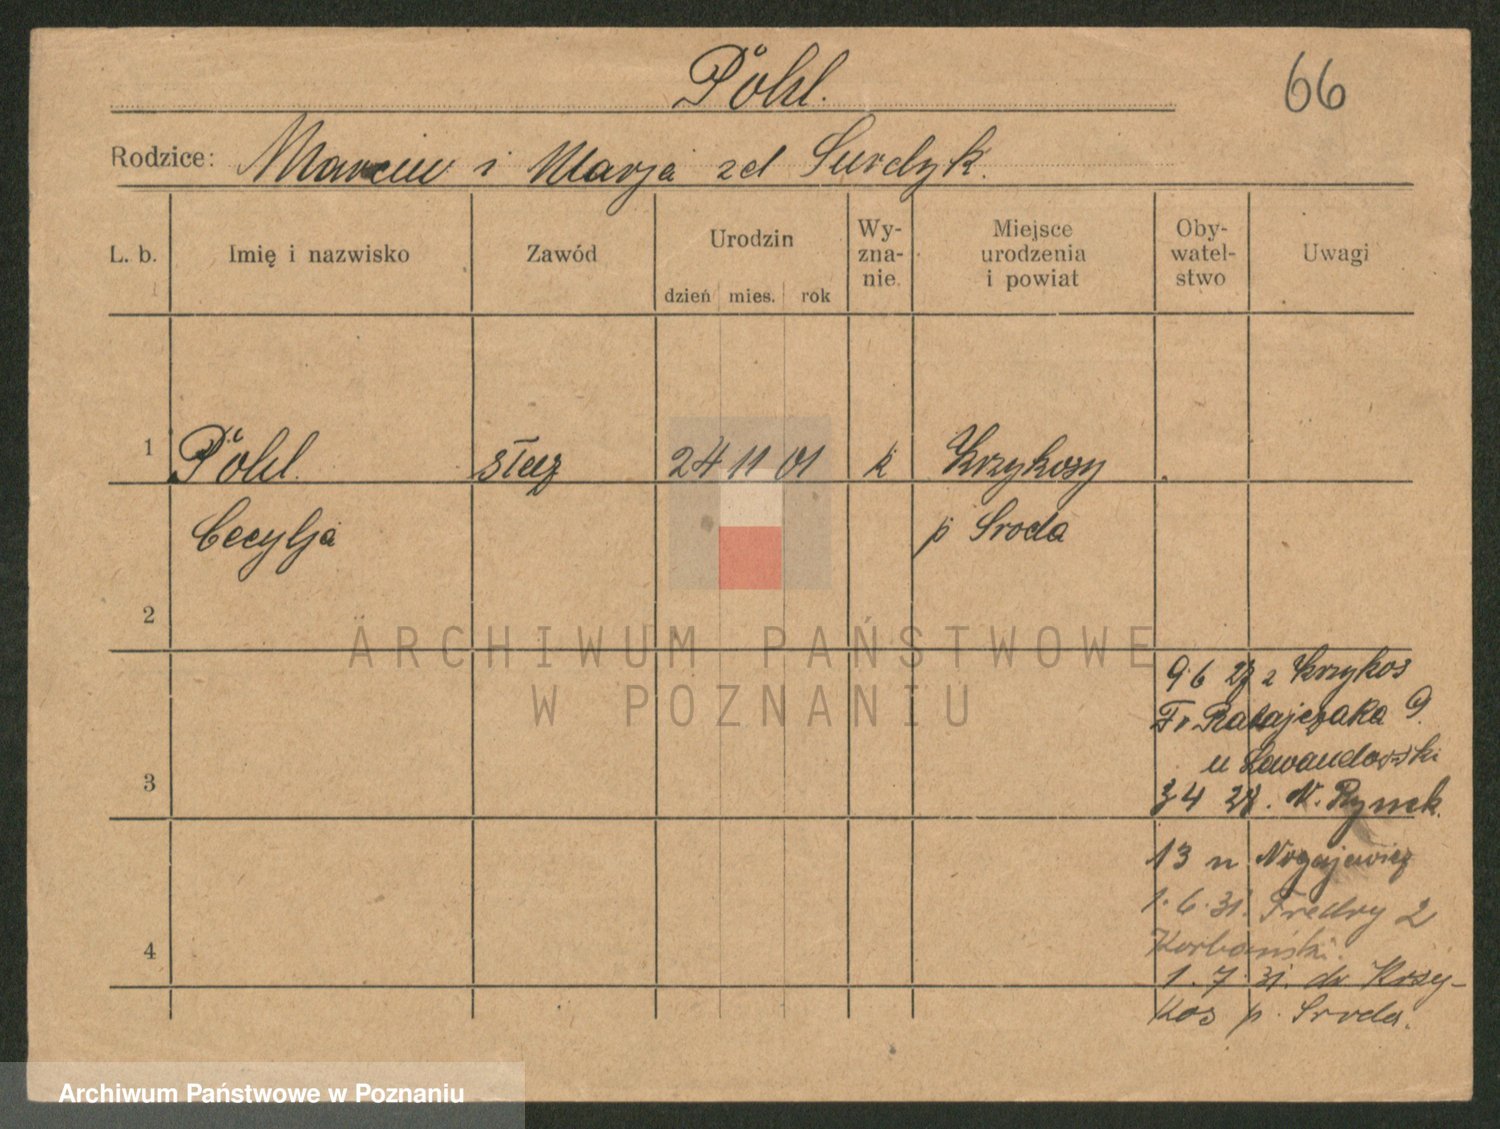 Pöhl.
66
Rodzice: Marcin i Marja zd Surdyk.
L. b. Imię i nazwisko Zawód Urodzin dzień mies. rok Wy-zna-nie. Miejsce urodzenia i powiat Oby-watel-stwo Uwagi
1 Pöhl. służ 24 11 01 k Krzykosy
Cecylja p Sroda
2
ARCHIWUM PAŃSTWOWE
W POZNANIU
9 6 27 z Krzykos
Fr Ratajczaka 9.
u Lewandowski
3
3 4 28. N. Rynek.
13 u Nogajewicz
1.6.31. Fredry 2
Korbański.
4
1.7.31. do Krzy-
kos p. Sroda.
Archiwum Państwowe w Poznaniu